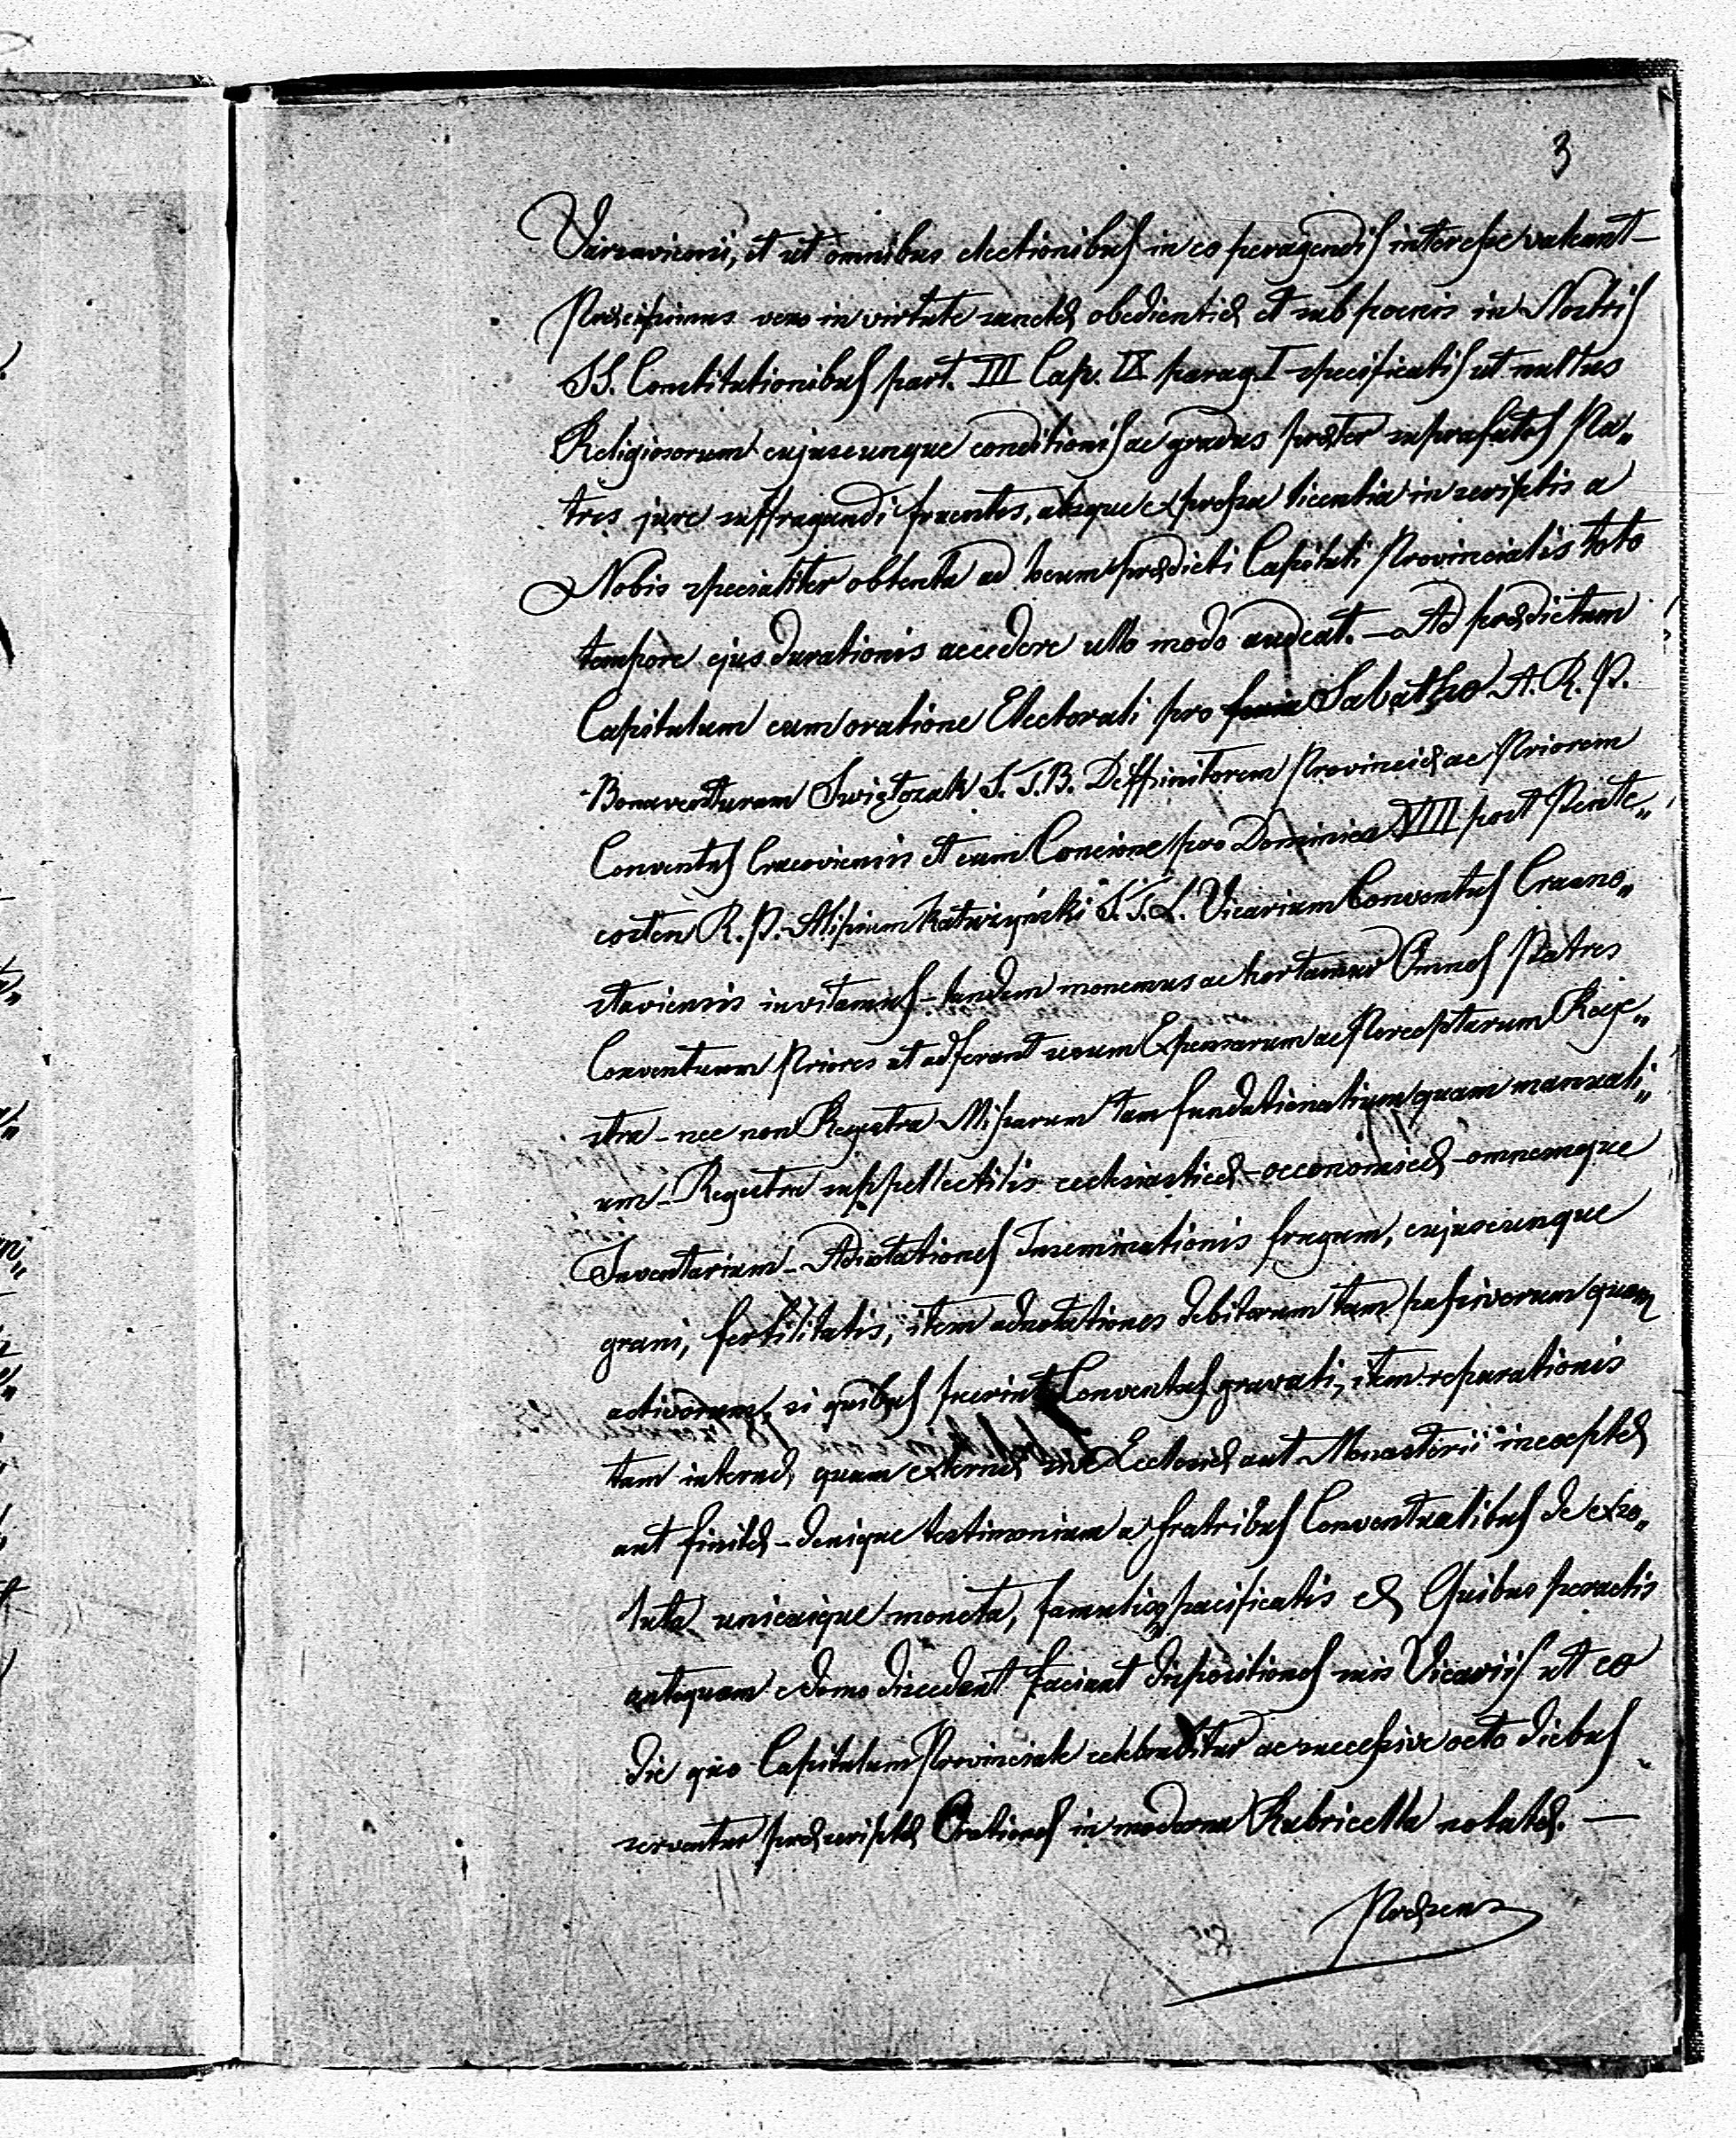 3
Varsaviensi, et ut omnibus electionibus in eo peragendis interesse valeant –
Præcipimus vero in virtute sanctæ obedientiæ et sub poenis in Nostris
SS. Constitutionibus part. III Cap. IX parag. I specificatis ut nullus
Religiosorum cujuscunque conditionis ac gradus præter suprafatos Pa„
tres jure suffragandi fruentes, absque expressa licentia in scriptis a
Nobis specialiter obtenta ad locum prædicti Capituli Provincialis toto
tempore ejus durationis accedere ullo modo audeat. – Ad prædictum
Capitulum cum oratione Electorali pro feria Sabatho A. R. P.
Bonaventuram Swiętorzak S. T. B. Deffinitorem Provinciæ ac Priorem
Conventus Cracoviensis et cum Concione pro Dominica VIII post Pente„
costen R. P. Alipium Katwiński S. T. L. Vicarium Conventus Crasno„
staviensis invitamus – tandem monemus ac hortamur Omnes Patres
Conventuum Priores ut adferant secum Expensarum ac Perceptarum Regi„
stra – nec non Registra Missarum tam fundationalium quam manuali„
um – Registra suppellectilis ecclesiasticæ – oeconomicæ – omnemque
Inventarium – Adnotationes Inseminationis frugum, cujuscunque
grani, fertilitatis, item adnotationes debitorum tam passivorum quam
activorum, si quibus fuerint Conventus gravati, item reparationis
tam internæ, quam externæ sive Ecclesiæ aut Monasterii inceptæ
aut finitæ – denique testimonium a fratribus Conventualibus de exso„
luta unicuique moneta, famulisq pacificatis &. Quibus peractis
antequam e domo discedant faciant dispositiones suis Vicariis ut eo
die quo Capitulum Provinciale celebrabitur ac successive octo diebus
serventur præscriptæ Orationes in moderna Rubricella notatæ. –
Præsens